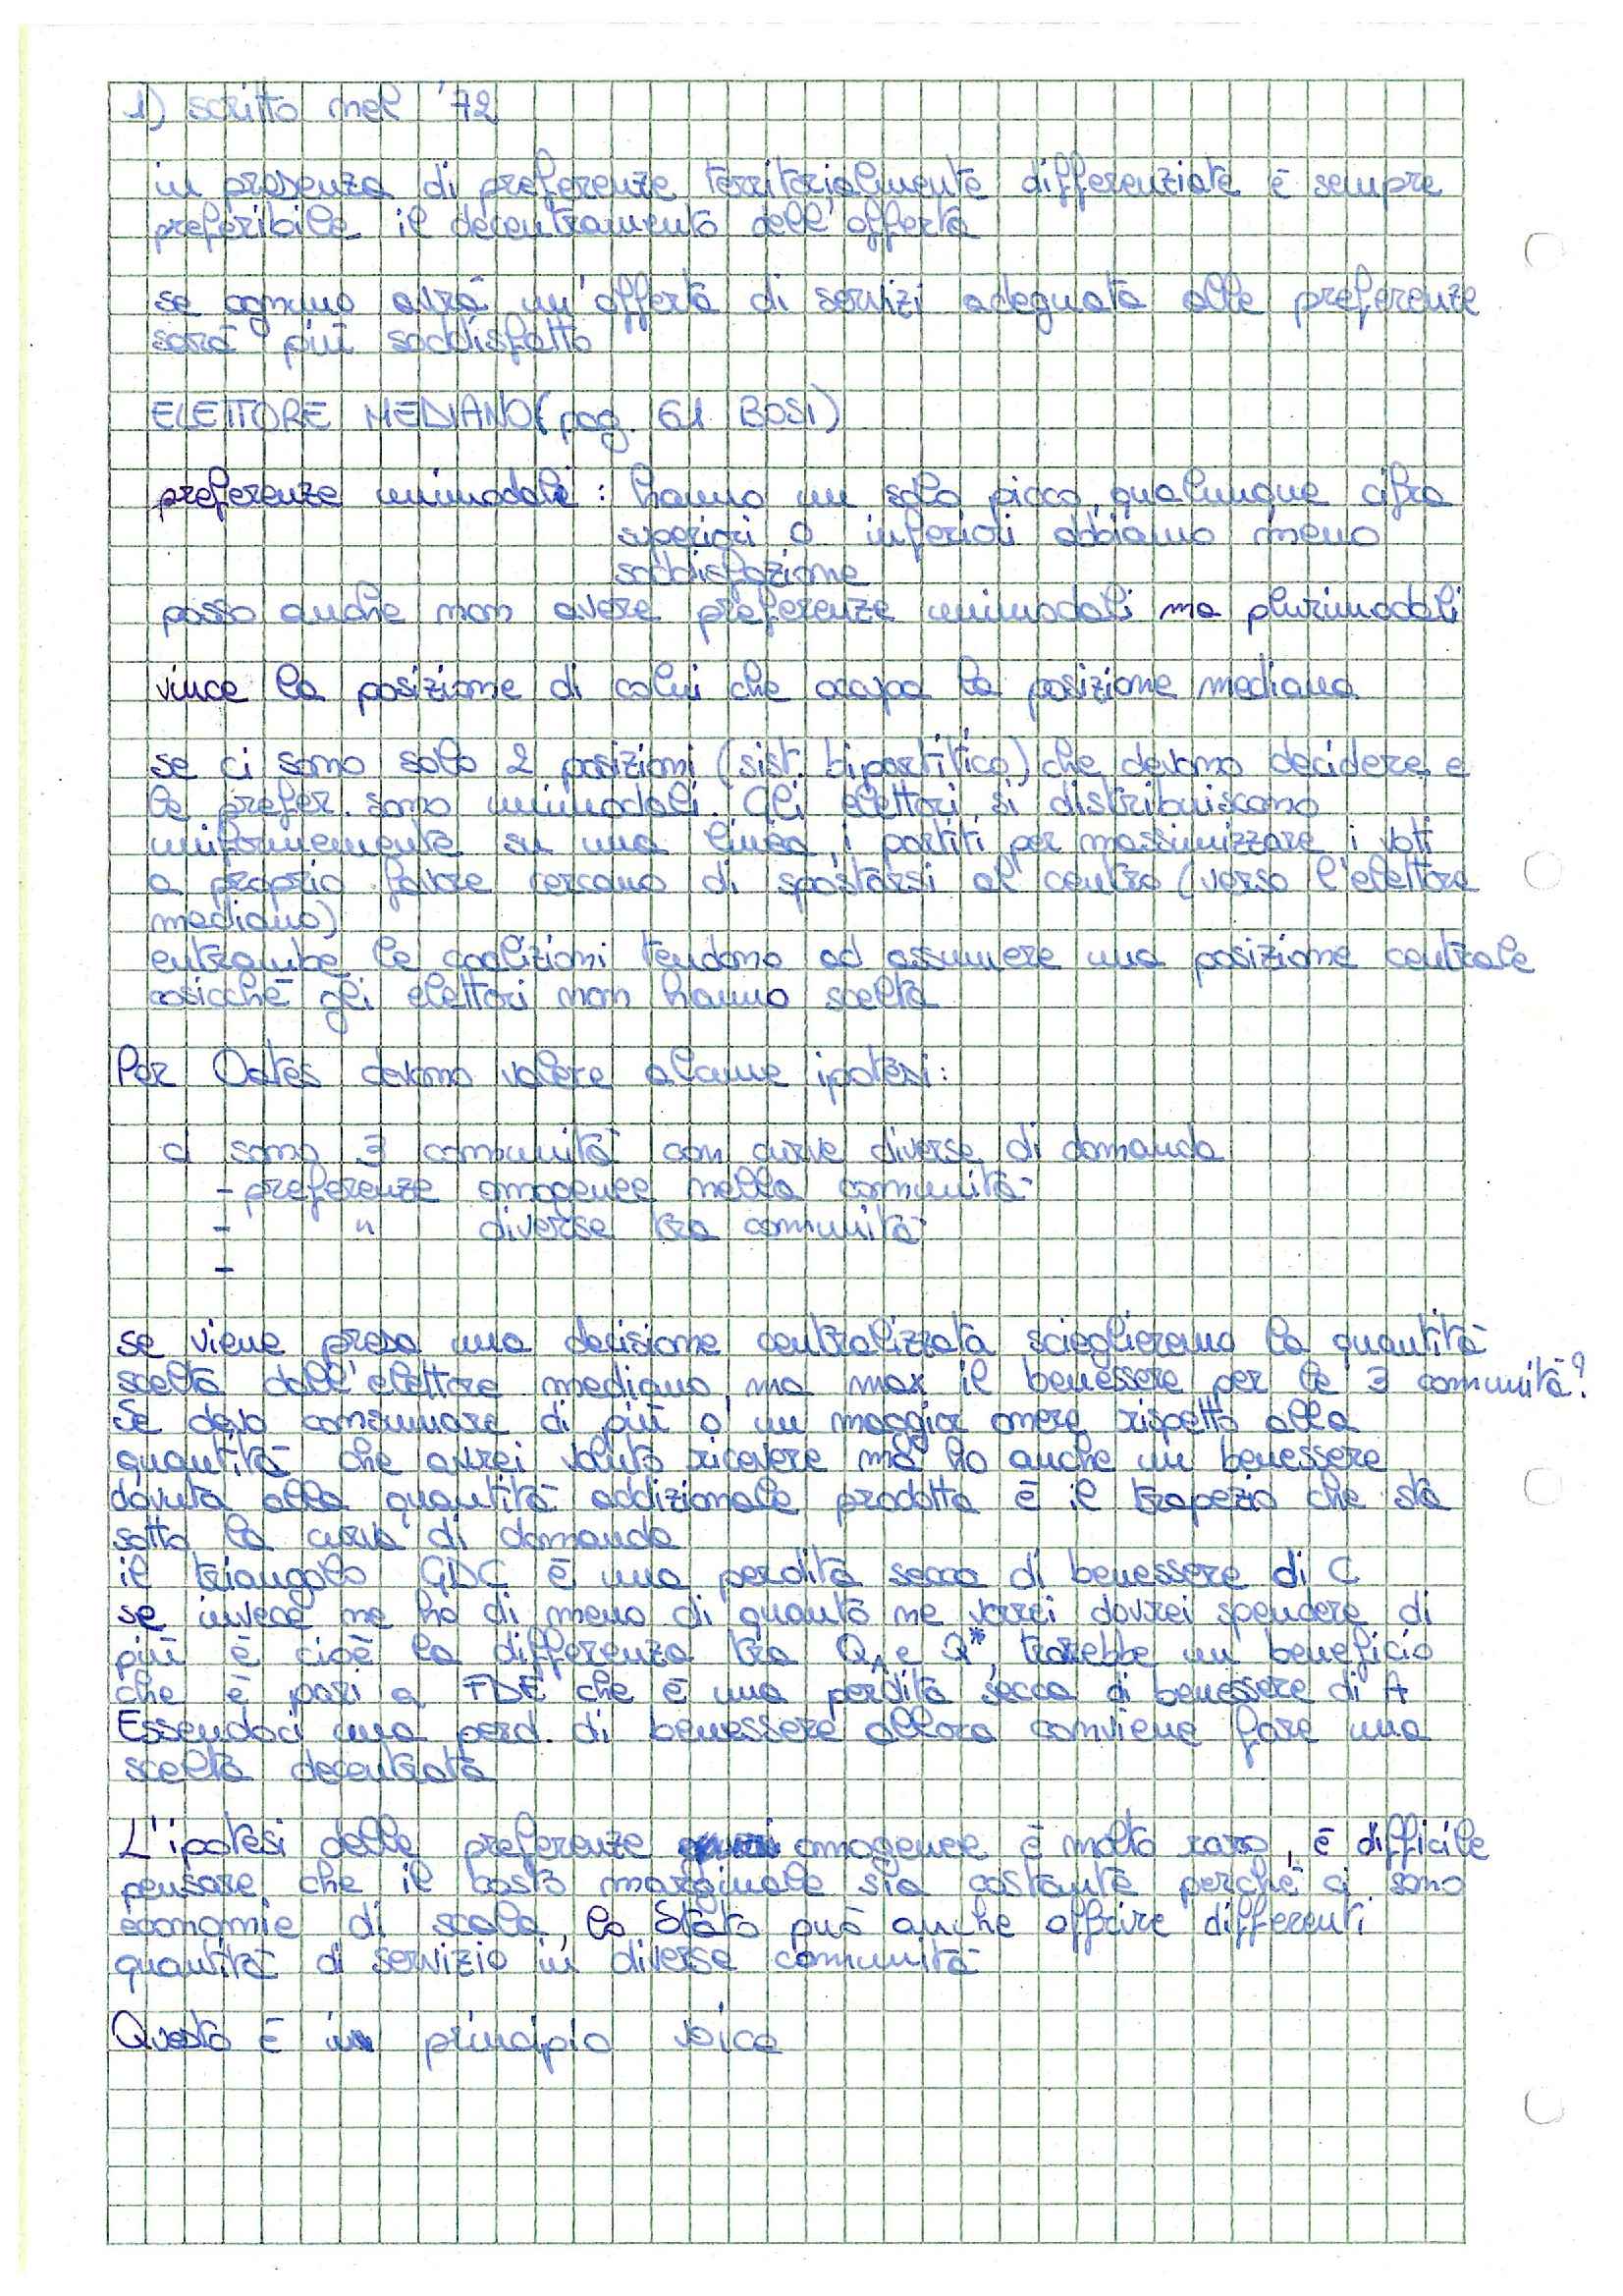 1) scritto nel '72
in presenza di preferenze territorialmente differenziate è sempre
preferibile il decentramento dell'offerta
se ognuno avrà un'offerta di servizi adeguata alle preferenze
sarà più soddisfatto
ELETTORE MEDIANO (pag. 61 BOSI)
preferenze unimodali : hanno un solo picco, qualunque cifra
superiori o inferiori abbiamo meno
soddisfazione
posso anche non avere preferenze unimodali ma plurimodali
vince la posizione di colui che occupa la posizione mediana
se ci sono solo 2 posizioni (sist. bipartitico) che devono decidere e
le prefer. sono unimodali. Gli elettori si distribuiscono
uniformemente su una linea, i partiti per massimizzare i voti
a proprio favore cercano di spostarsi al centro (verso l'elettore
mediano)
entrambe le coalizioni tendono ad assumere una posizione centrale
cosicché gli elettori non hanno scelta
Per Oates devono valere alcune ipotesi:
ci sono 3 comunità con curve diverse di domanda
- preferenze omogenee nella comunità
- " diverse tra comunità
-
se viene presa una decisione centralizzata sceglieremo la quantità
scelta dall'elettore mediano, ma max il benessere per le 3 comunità?
Se devo consumare di più o' un maggior onere rispetto alla
quantità che avrei voluto ricevere ma ho anche un benessere
dovuta alla quantità addizionale prodotta è il trapezio che sta
sotto la curva di domanda
il triangolo GDC è una perdita secca di benessere di C
se invece ne ho di meno di quanto ne vorrei dovrei spendere di
più è cioè la differenza tra QA e Q*, trarebbe un beneficio
che è pari a FDE che è una perdita secca di benessere di A
Essendoci una perd. di benessere allora conviene fare una
scelta decentrata
L'ipotesi delle preferenze omogenee è molto rara, è difficile
pensare che il costo marginale sia costante perchè ci sono
economie di scala, lo Stato può anche offrire differenti
quantità di servizio in diverse comunità
Questo è in principio